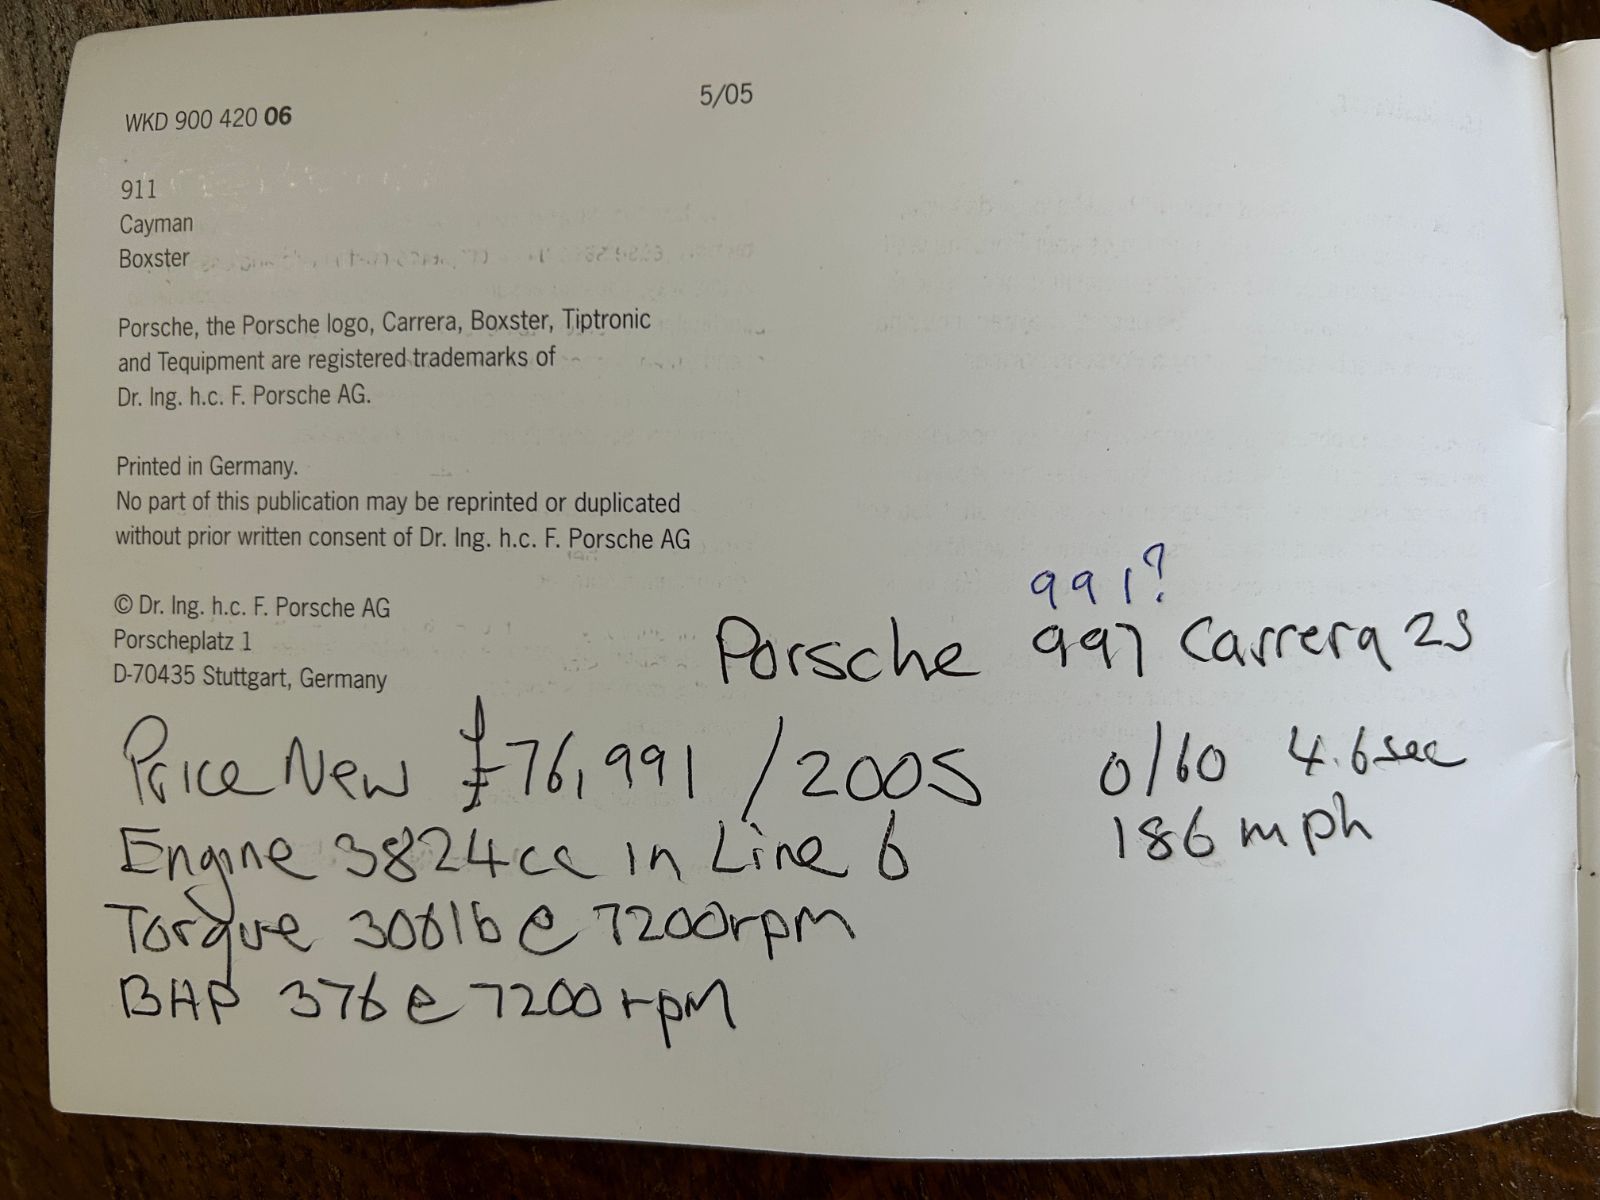 WKD 900 420 06
5/05
911
Cayman
Boxster
Porsche, the Porsche logo, Carrera, Boxster, Tiptronic
and Tequipment are registered trademarks of
Dr. Ing. h.c. F. Porsche AG.
Printed in Germany.
No part of this publication may be reprinted or duplicated
without prior written consent of Dr. Ing. h.c. F. Porsche AG
© Dr. Ing. h.c. F. Porsche AG
Porscheplatz 1
D-70435 Stuttgart, Germany
991?
Porsche 997 Carrera 2S
Price New £76,991 / 2005
0/60 4.6sec
Engine 3824cc in Line 6
186 mph
Torque 306lb @ 7200rpm
BHP 376 @ 7200rpm